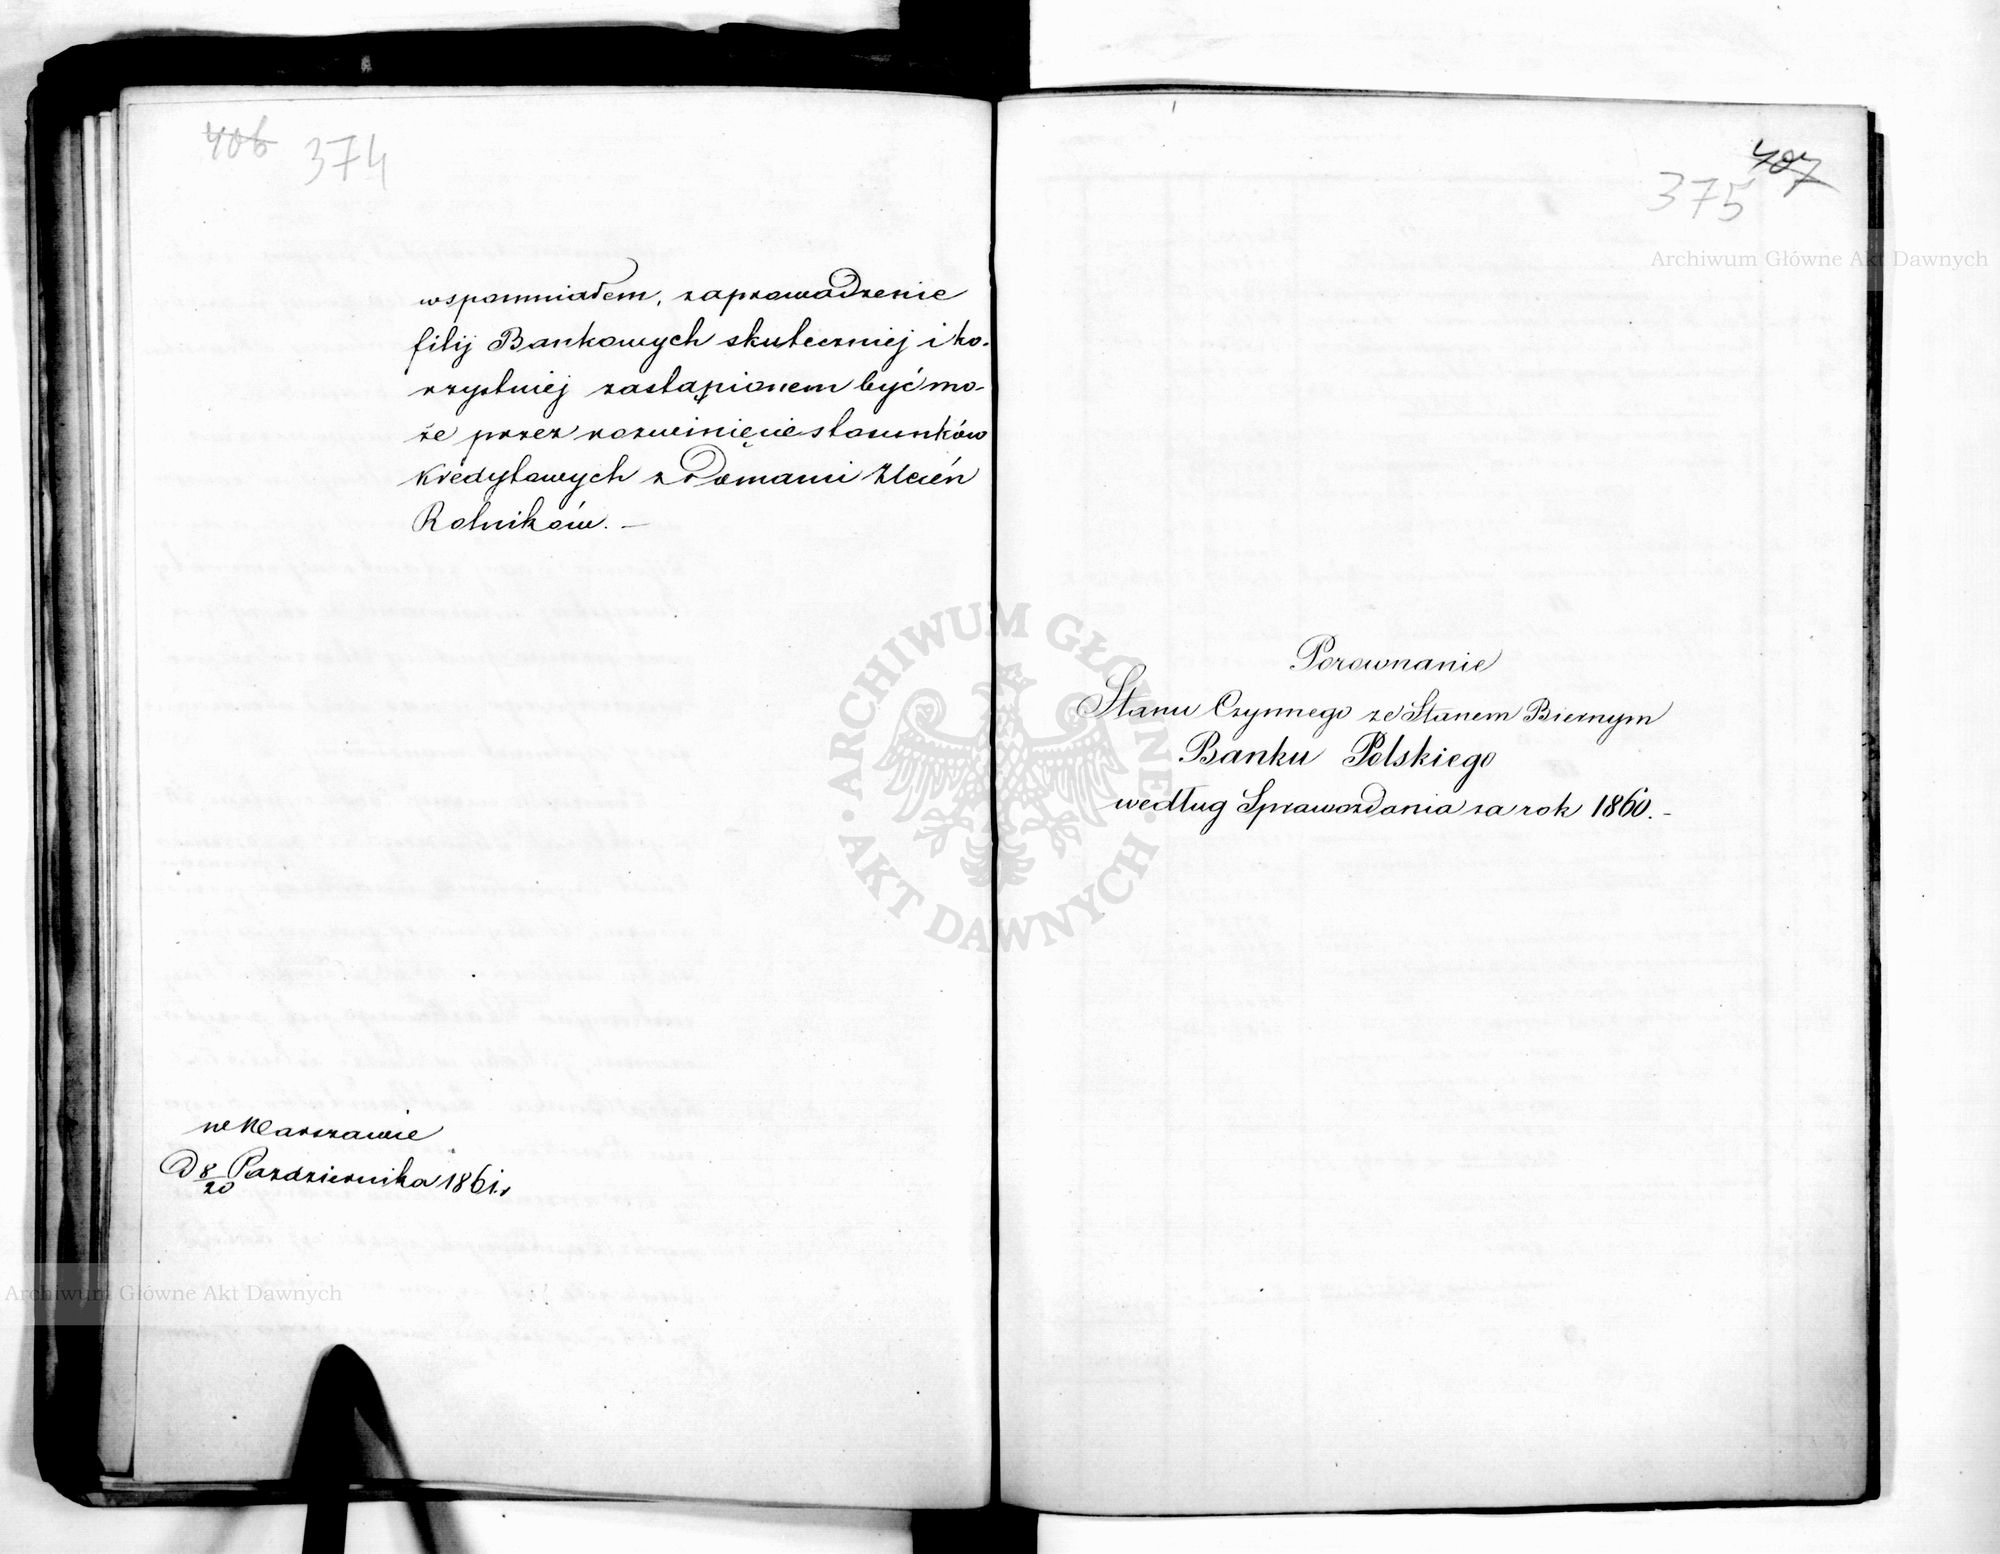 406 374
wspomniałem, zaprowadzenie
filij Bankowych skuteczniej i ko-
rzystniej zastąpionem być mo-
że przez rozwinięcie stosunków
kredytowych z Domami Zleceń
Rolników. —
w Warszawie
D 8/20 Pazdziernika 1861 r.
407
375
Archiwum Główne Akt Dawnych
Porownanie
Stanu Czynnego ze Stanem Biernym
Banku Polskiego
według Sprawozdania za rok 1860. -
ARCHIWUM GŁÓWNE AKT DAWNYCH
Archiwum Główne Akt Dawnych